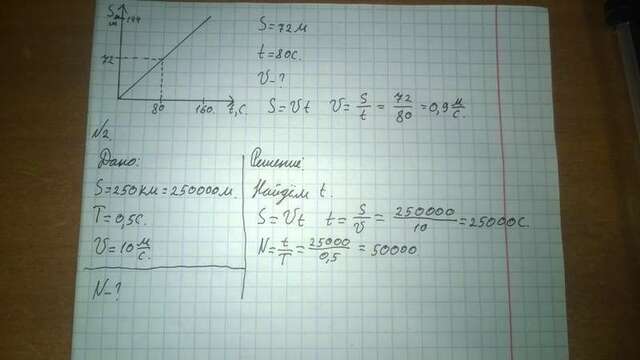 S,
м 144
72
80 160 t,с.
S=72м
t=80с.
V-?
S=Vt V=S/t=72/80=0,9 м/с.
N2
Дано:
S=250км=250000м.
T=0,5с.
V=10 м/с.
N-?
Решение:
Найдём t.
S=Vt t=S/V=250000/10=25000с.
N=t/T=25000/0,5=50000